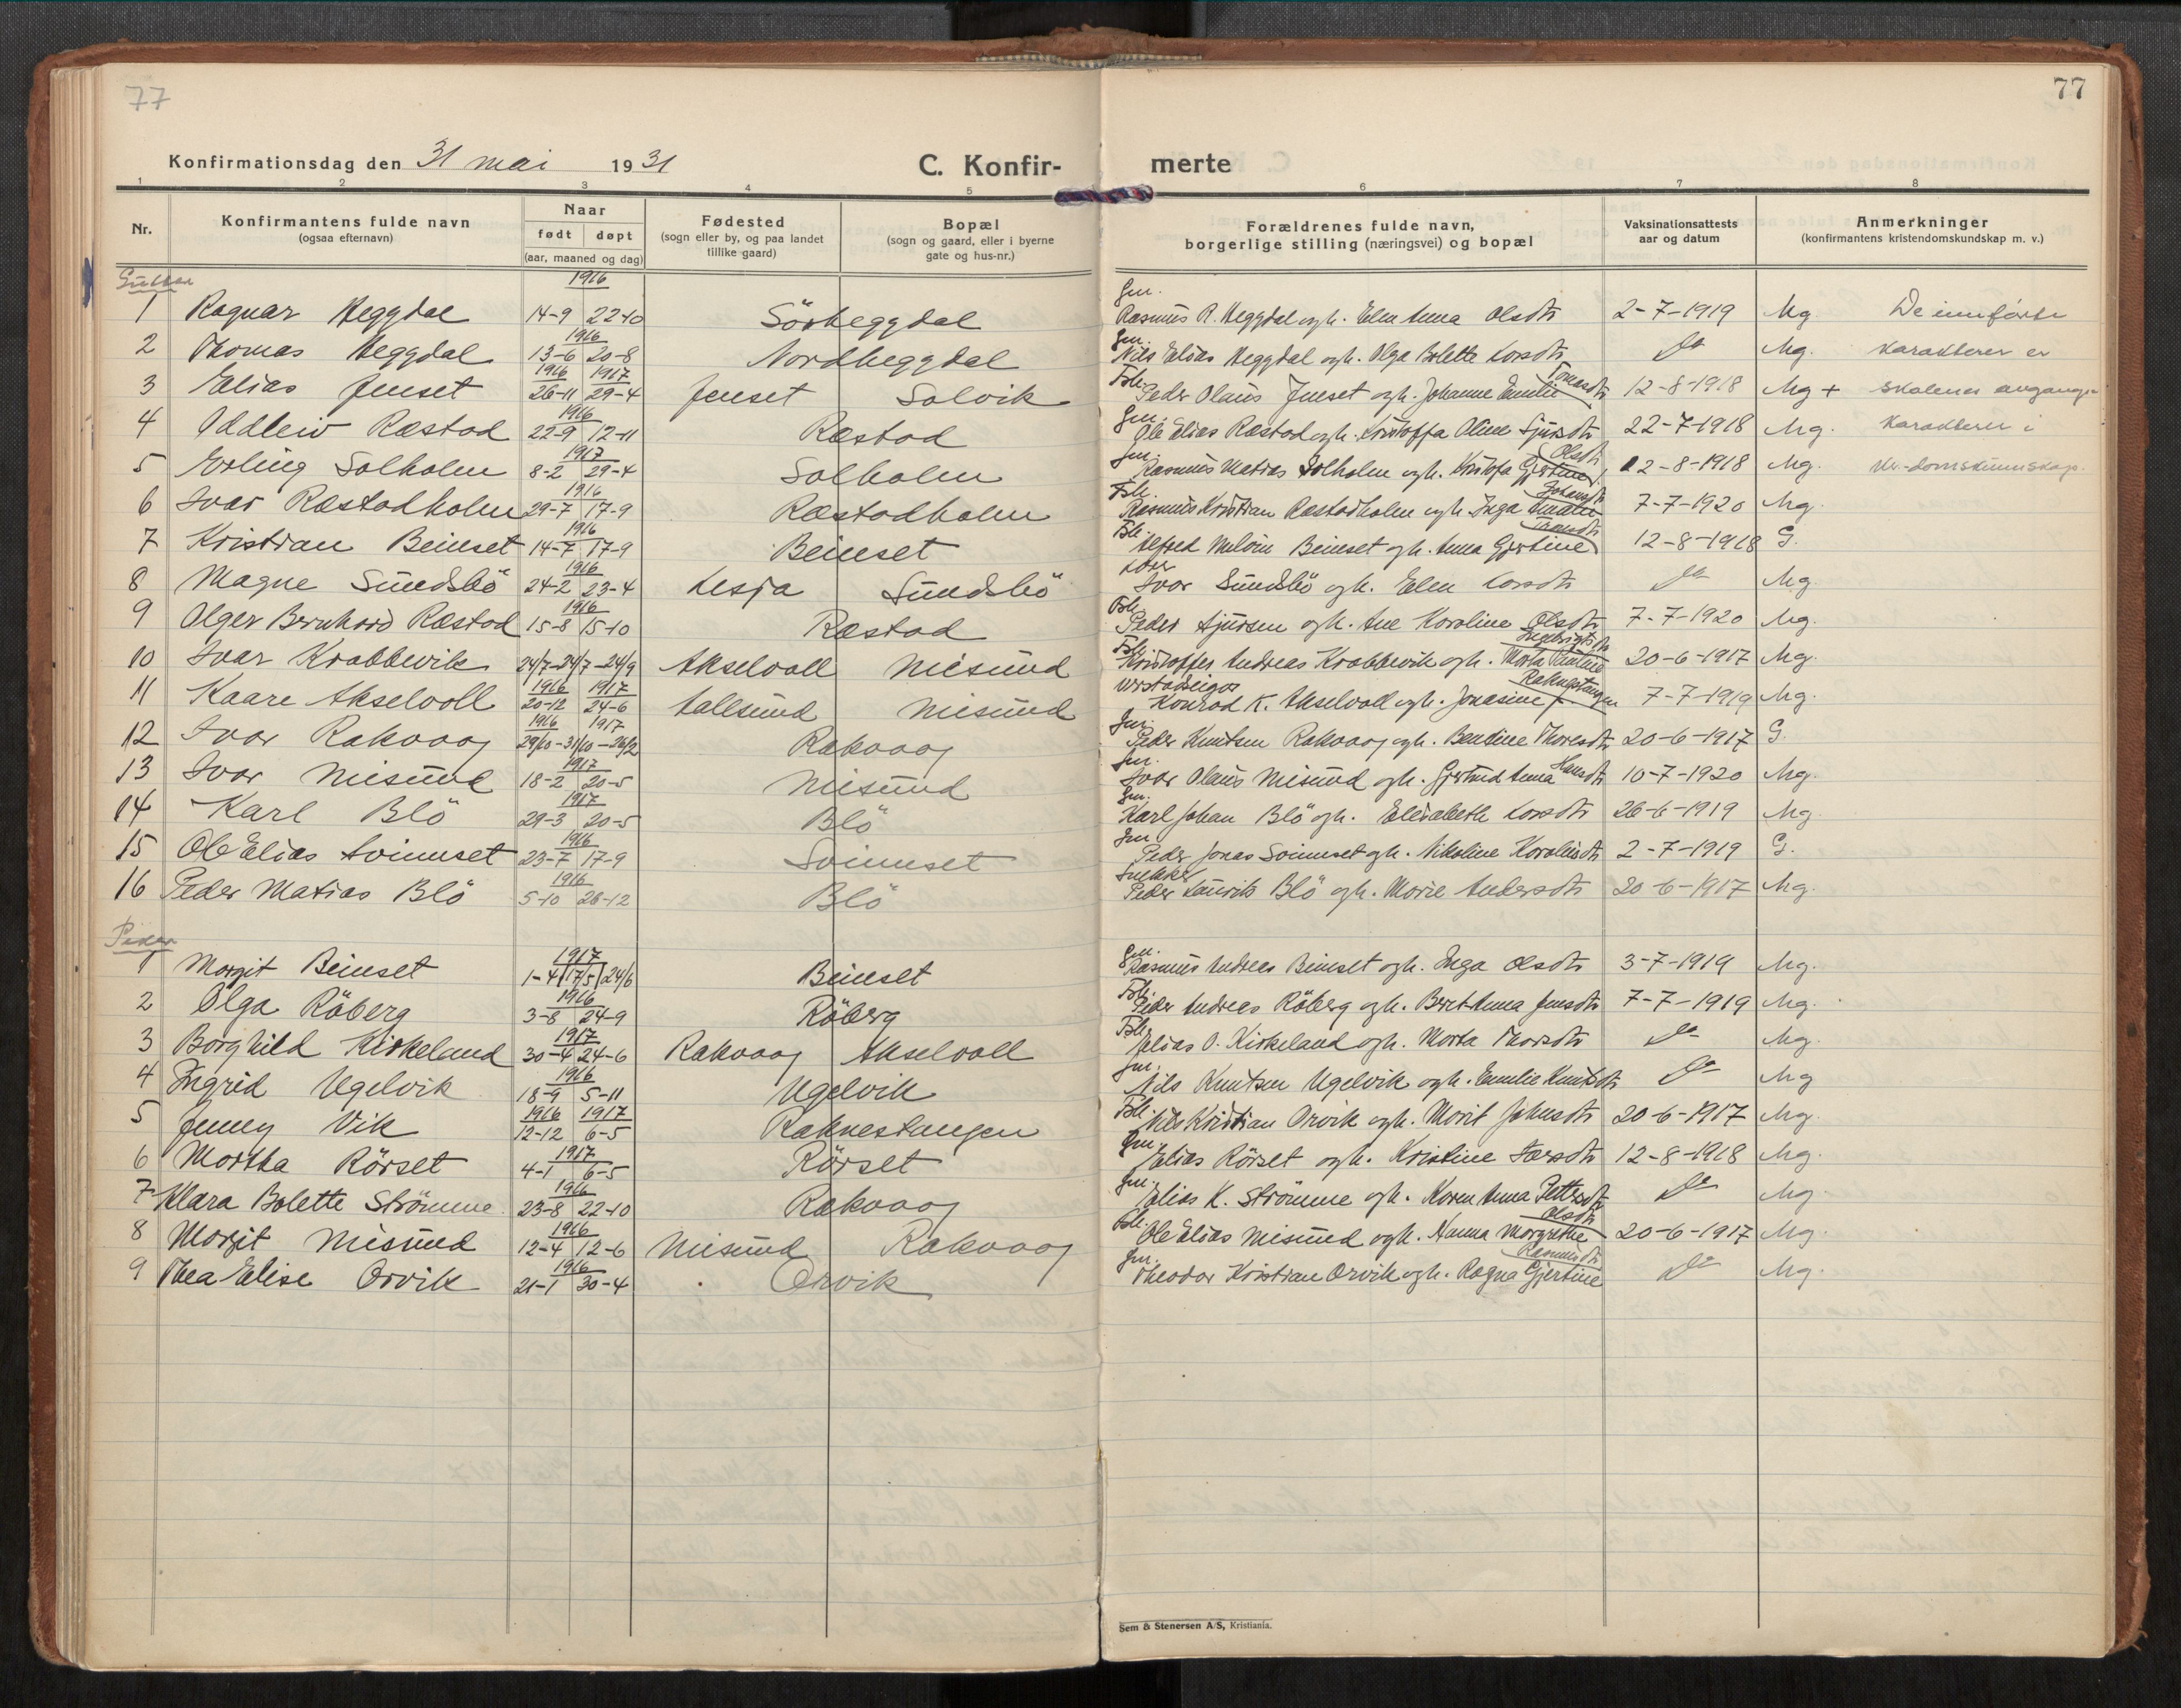 77
77
Konfirmationsdag den 31 mai 1931
C. Konfir-
merte
1 2 3 4 5 6 7 8
Nr.
Konfirmantens fulde navn
(ogsaa efternavn)
Naar
født døpt
(aar, maaned og dag)
Fødested
(sogn eller by, og paa landet
tillike gaard)
Bopæl
(sogn og gaard, eller i byerne
gate og hus-nr.)
Forældrenes fulde navn,
borgerlige stilling (næringsvei) og bopæl
Vaksinationsattests
aar og datum
Anmerkninger
(konfirmantens kristendomskundskap m. v.)
Gutter
1 Ragnar Heggdal 1916 14-9 22-10 Sörheggdal Gm. Rasmus R. Heggdal ogh. Elen Anna Olsdtr 2-7-1919 Mg De innförte
2 Thomas Heggdal 1916 13-6 20-8 Nordheggdal Gm. Nils Elias Heggdal ogh. Olga Bolette Larsdtr Do Mg. karakterer er
3 Elias Jenset 1916 1917 26-11 29-4 Jenset Solvik Fbr. Peder Olaus Jenset ogh. Johanne Emilie Tomasdtr 12-8-1918 Mg + skolenes avgangs-
4 Oddleiv Ræstad 1916 22-9 12-11 Ræstad Gm. Ole Elias Ræstad ogh. Kristoffa Oline Sjursdtr 22-7-1918 Mg. karakterer i
5 Erling Solholm 1917 8-2 29-4 Solholm Gm. Rasmus Matias Solholm ogh. Kristofa Gjertine Olsdtr 12-8-1918 Mg. kr.-domskunnskap.
6 Ivar Ræstadholm 1916 29-7 17-9 Ræstadholm Fbr. Rasmus Kristian Ræstadholm ogh. Inga Amalie Johansdtr 7-7-1920 Mg.
7 Kristian Beinset 1916 14-7 17-9 Beinset Fbr. Alfred Melvin Beinset ogh. Anna Gjertine 12-8-1918 G.
8 Magne Sundsbö 1916 24-2 23-4 Lesja Sundsbö Ivar Sundsbö ogh. Elen Larsdtr Do Mg.
9 Olger Bernhard Ræstad 1916 15-8 15-10 Ræstad Fbr. Peder Sjursen ogh. Ane Karoline Olsdtr 7-7-1920 Mg.
10 Ivar Krabbevik 24/7-24/7-24/9 Akselvoll Misund Fbr. Kristoffer Andreas Krabbevik ogh. Marta Pauline Ingebrigtsdtr 20-6-1917 Mg.
11 Kaare Akselvoll 1916 1917 20-12 24-6 Sallsund Misund verkstadseigar Konrad K. Akselvoll ogh. Jonasine f. Raknestangen 7-7-1919 Mg.
12 Ivar Rakvaag 1916 1917 29/10-31/10-26/2 Rakvaag Gm. Peder Knutsen Rakvaag ogh. Bendine Thoresdtr 20-6-1917 G.
13 Ivar Misund 1917 18-2 20-5 Misund Gm. Ivar Olaus Misund ogh. Gjertrud Anna Hansdtr 10-7-1920 Mg.
14 Karl Blö 1917 29-3 20-5 Blö Gm. Karl Johan Blö ogh. Elisabeth Larsdtr 26-6-1919 Mg
15 Ole Elias Svinnset 1916 23-7 17-9 Svinnset Gm Peder Jonas Svinnset ogh. Nikoline Karolusdtr 2-7-1919 G.
16 Peder Matias Blö 1916 5-10 26-12 Blö Snekker Peder Laurits Blö ogh. Marie Andersdtr 20-6-1917 Mg.
Piker
1 Margit Beinset 1917 1-4 17/5 24/6 Beinset Gm. Rasmus Andreas Beinset ogh. Inga Olsdtr 3-7-1919 Mg.
2 Olga Röberg 1916 3-8 24-9 Röberg Fbr. Peder Andreas Röberg ogh. Beret Anna Jensdtr 7-7-1919 Mg.
3 Borghild Kirkeland 1917 30-4 24-6 Rakvaag Akselvoll Fbr. Elias O. Kirkeland ogh. Marta Thorsdtr Do Mg.
4 Ingrid Ugelvik 1916 18-9 5-11 Ugelvik Gm. Nils Knutsen Ugelvik ogh. Emilie Knutsdtr Do Mg
5 Jenny Vik 1916 1917 12-12 6-5 Raknestangen Fbr. Nils Kristian Orvik ogh. Marit Johnsdtr 20-6-1917 Mg.
6 Martha Rörset 1917 4-1 6-5 Rörset Gm. Elias Rörset ogh. Kristine Larsdtr 12-8-1918 Mg.
7 Klara Bolette Strömme 1916 23-8 22-10 Rakvaag Gm. Elias K. Strömme ogh. Karen Anna Pettersdtr Do Mg.
8 Margit Misund 1916 12-4 12-6 Misund Rakvaag Fbr. Ole Elias Misund ogh. Hanna Margrethe Olsdtr 20-6-1917 Mg.
9 Thea Elise Orvik 1916 21-1 30-4 Orvik Gm. Theodor Kristian Orvik ogh. Ragna Gjertine Rasmusdtr Do Mg.
Sem & Stenersen A/S, Kristiania.